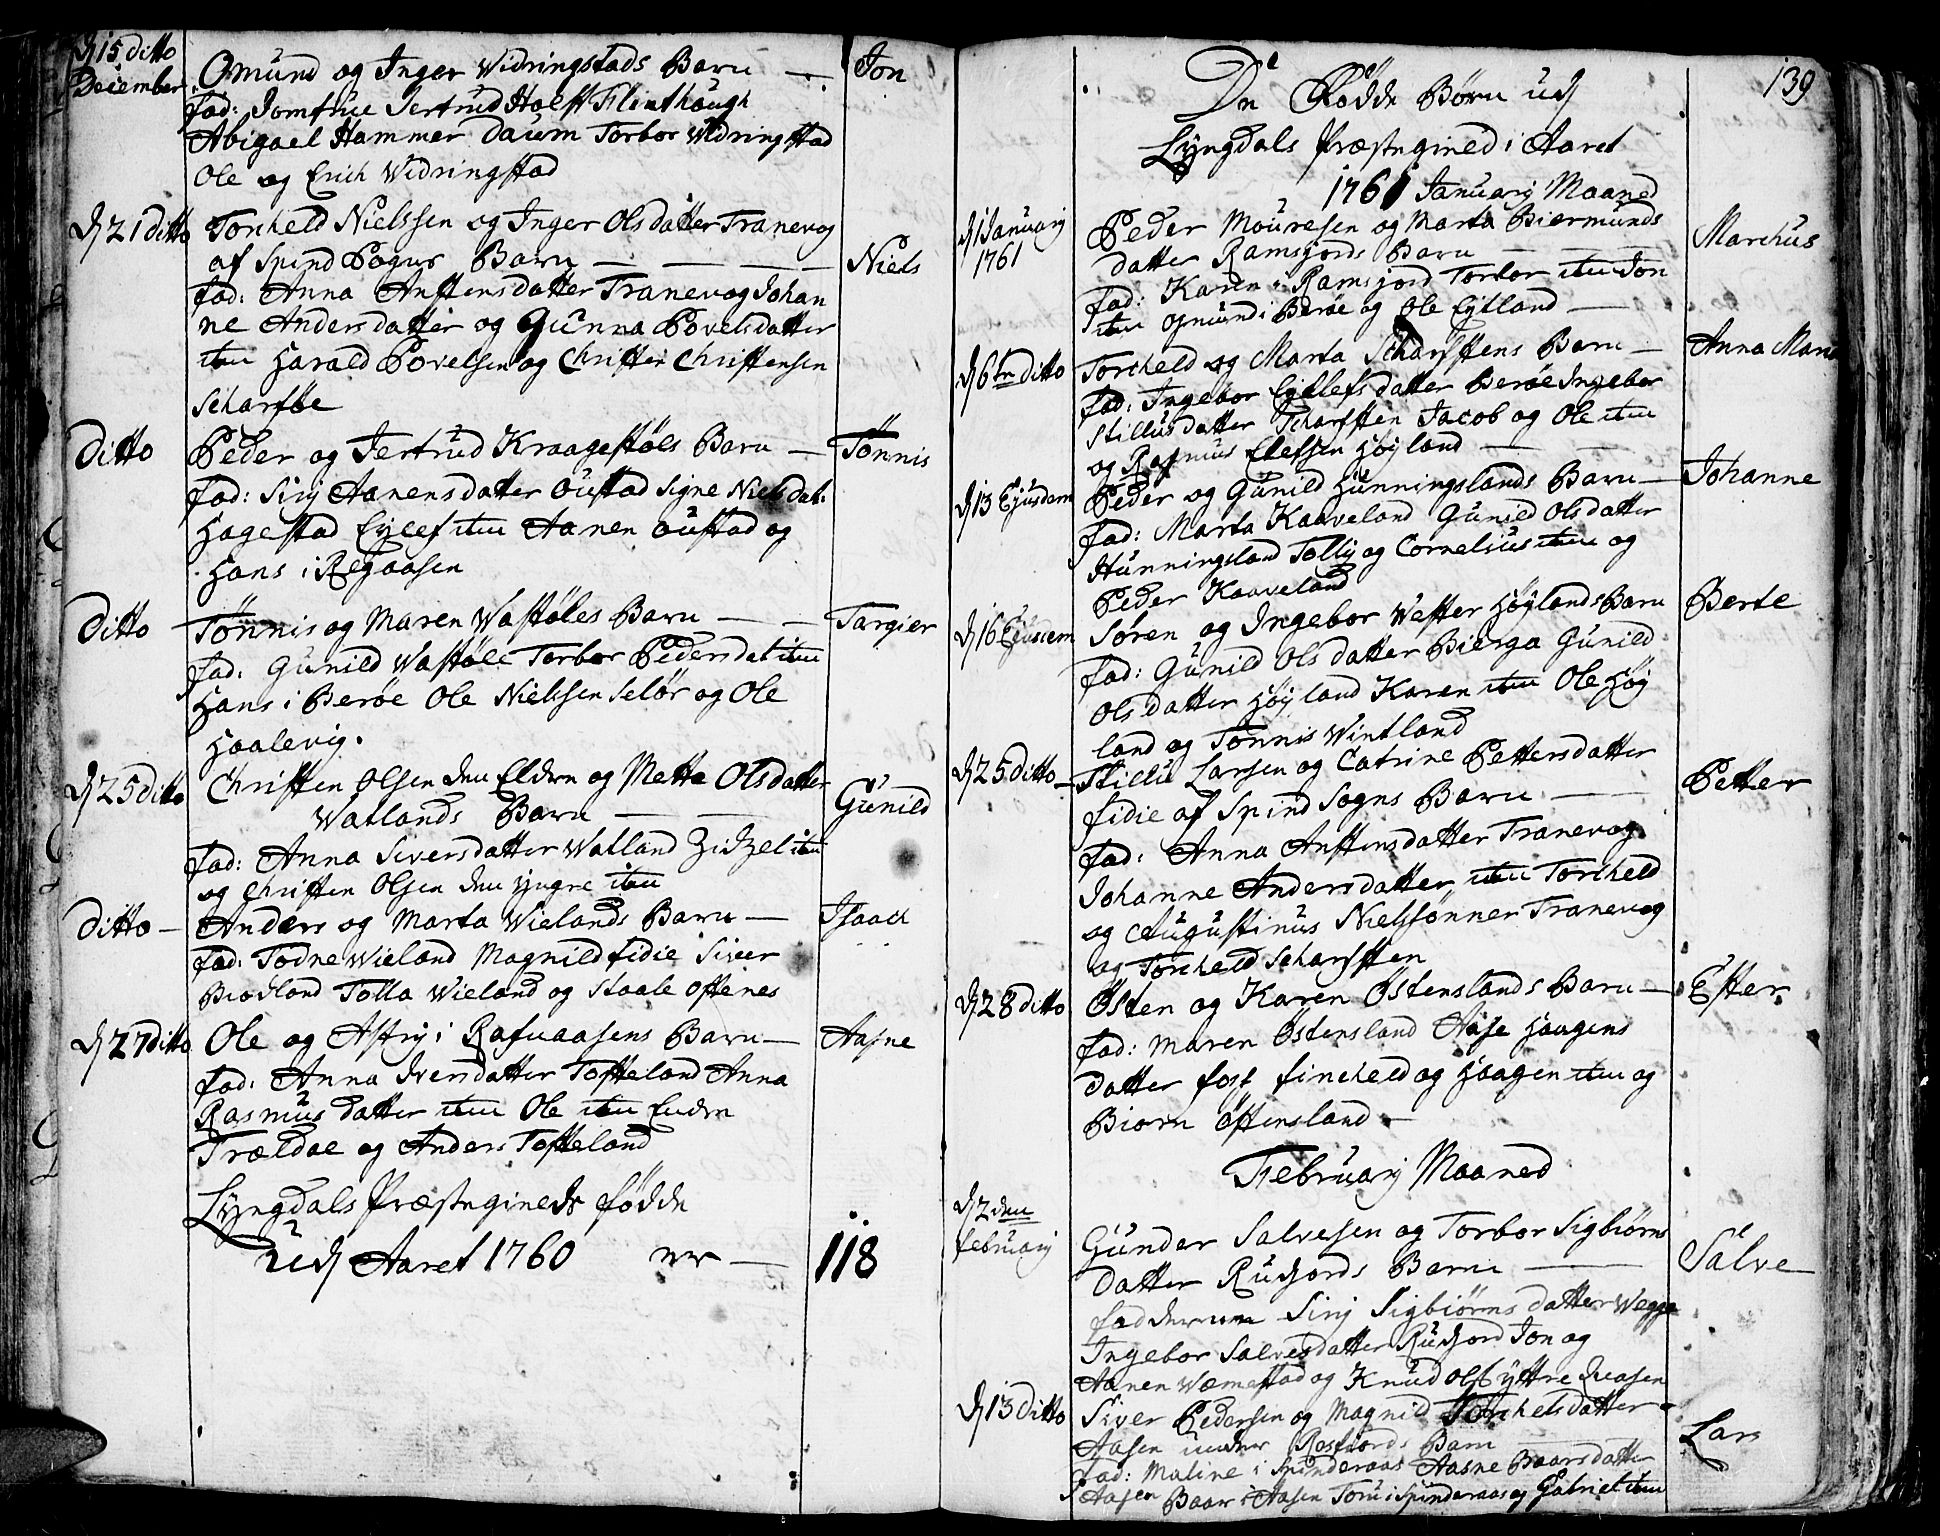 d 15 ditto
December
Omund og Inger Widringstads Barn — Jon
fad: Jomfrue Jertrud Holst Flinthaugh
Abigael Hammer Daum Torbor Widringstad
Ole og Erich Widringstad
d 21 ditto Torcheld Nielssen og Inger Olsdatter Tranevog
af Spind Sogns Barn — Niels
fad: Anna Anstensdatter Tranevog Johan
ne Andersdatter og Gunna Povelsdatter
item Harald Povelsen og Christen Christensen
Scharstøe
ditto Peder og Jertrud Kraagestøls Barn — Tönnis
fad: Sirj Aanensdatter Oustad Signe Nielsdat:
Hagestad Eylef item Aanen Oustad og
Hans i Regaasen
ditto Tönnis og Maren Wastöles Barn — Targier
fad: Gunild Wastöle Torbor Pedersdat item
Hans i Berøe Ole Nielssen Selör og Ole
Haalevig.
d 25 ditto Christen Olsen den Eldre og Metta Olsdatter
Watlands Barn — Gunild
fad: Anna Siversdatter Watland Zidzel item
og Christen Olsen den yngre item
ditto — Anders og Marta Wielands Barn — Isaach
fad: Todne Wieland Magnild fidie Siver
Biodland Tolla Wieland og Staale Ostenes
d 27 ditto Ole og Astrj i Rafnaasens Barn — Aasne
fad: Anna Iversdatter Tofteland Anna
Rasmus datter item Ole item Endre
Trældae og Anders Tofteland
Lyngdals Præstegields födde
udj Aaret 1760 er — 118
139
De Födde Börn udj
Lyngdals Præstegield i Aaret
1761 Januarij Maaned
d 1 Januarij
1761
Peder Mouresen og Marta Biermunds
datter Ramsfjords Barn — Marchus
fad: Karen i Ramsfjord Torbor item Jon
item Omund i Berøe og Ole Eytland —
d 6te ditto Torcheld og Marta Scharstens Barn — Anna Mari
fad: Ingebor Eyllefs datter Berøe Ingebor
Stillusdatter Scharsten Jacob og Ole item
og Rasmus Elefsen Høyland —
d 13 Ejusdem Peder og Gunild Hunningslands Barn — Johanne
fad: Marta Kaaveland Gunild Olsdatter
Hunningsland Tollij og Cornelius item og
Peder Kaaveland
d 16 Ejusdem Søren og Ingebor Wester Höylands Barn Berte
fad: Gunild Olsdatter Bierga Gunild
Olsdatter Höyland Karen item Ole Höy
land og Tönnis Wintland
d 25 ditto — Stillu Larsen og Catrine Pettersdatter
fidie af Spind Sogns Barn — Petter
fad: Anna Anstensdatter Tranevog
Johanne Andersdatter, item Torcheld
og Augustinus Nielssønner Tranevog
og Torcheld Scharsten
d 28 ditto Østen og Karen Östenslands Barn — Ester
fad: Maren Östensland Aase Haagens
datter foss fincheld og Haagen item og
Biorn Östensland —
Februarij Maaned
d 2 den
februarij
Gunder Salvesen og Torbor Sigbiörns
datter Rudjords Barn — Salve
fadderne Sirj Sigbiörns datter Wegge
Ingebor Salvesdatter Rudjord Jon og
Aanen Wæmestad og Knud Ols yttre Quaasen
d 13 ditto Siver Pedersen og Magnild Torchelsdatter
Aasen under Rosfiords Barn — Lars
fad: Maline i Spinderaas Aasne Baarsdatter
Aasen Baar i Aasen Tore i Spinderaas og Gabriel item